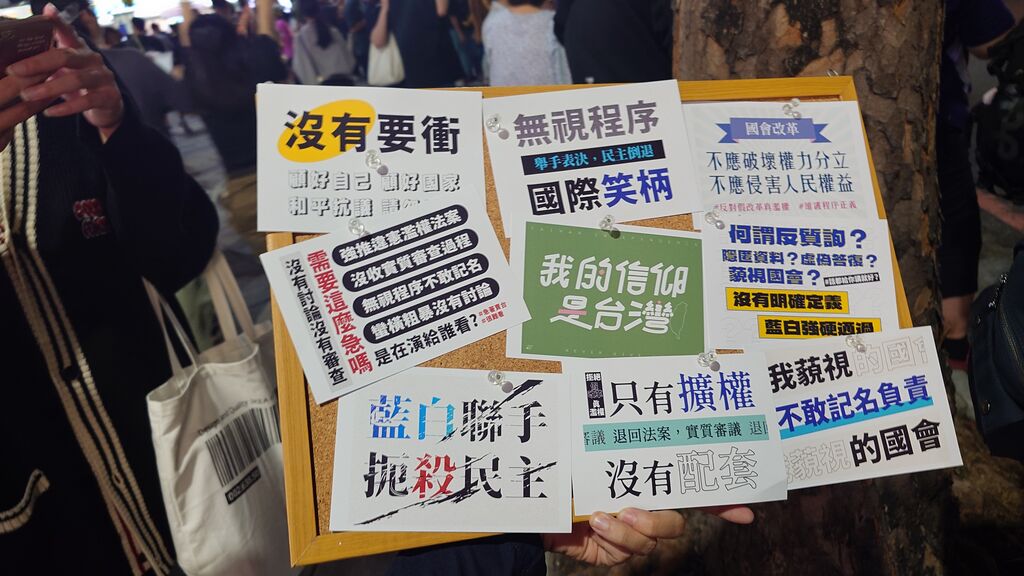 沒有要衝
顧好自己 顧好國家
和平抗議
無視程序
舉手表決，民主倒退
國際笑柄
國會改革
不應破壞權力分立
不應侵害人民權益
#反對假改革真濫權 #維護程序正義
沒有討論沒有審查
需要這麼急嗎
強推違憲濫權法案
沒收實質審查過程
無視程序不敢記名
蠻橫粗暴沒有討論
是在演給誰看?
我的信仰
是台灣
何謂反質詢？
隱匿資料？虛偽答復？
藐視國會？
沒有明確定義
藍白強硬通過
藍白聯手
扼殺民主
只有擴權
審議 退回法案，實質審議 退回
沒有配套
我藐視的國會
不敢記名負責
藐視的國會